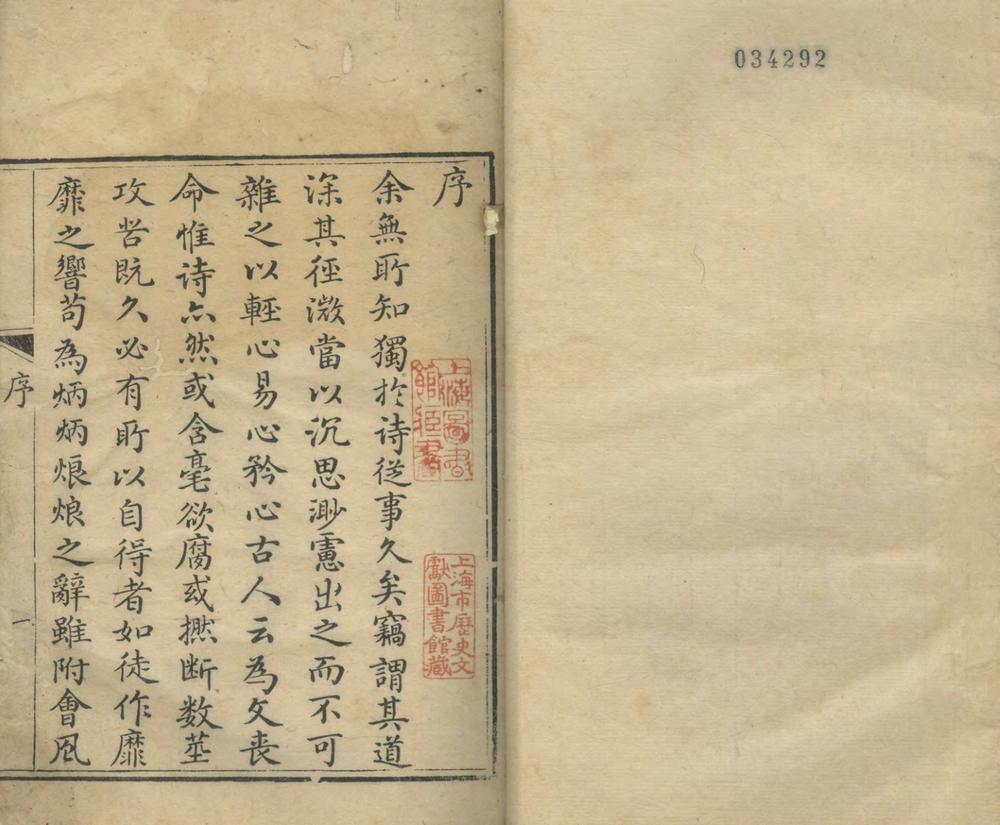 034292
序
余無所知獨扵诗從事久矣竊謂其道
深其徑微當以沉思渺慮出之而不可
雜之以輕心易心矜心古人云為文丧
命惟诗亦然或含毫欲腐或撚断数莖
攻苦既久必有所以自得者如徒作靡
靡之響苟為炳炳烺烺之辭雖附會風
序
一
上海圖書
館藏書
上海市歷史文
獻圖書館藏